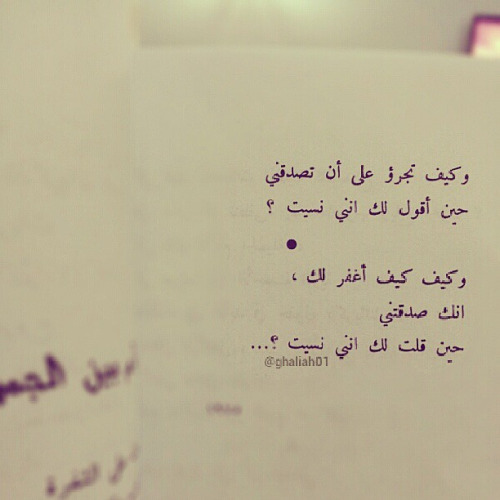 وكيف تجرؤ على أن تصدقني
حين أقول لك اني نسيت ؟
•
وكيف كيف أغفر لك ،
انك صدقتني
حين قلت لك اني نسيت ؟...
@ghaliah01